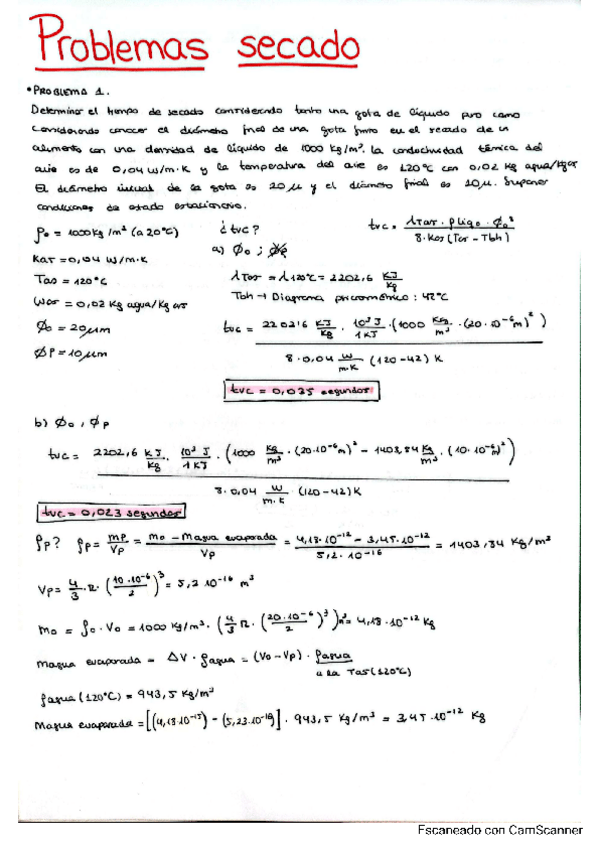 Problemas secado
• PROBLEMA 1.
Determinar el tiempo de secado considerando tanto una gota de líquido puro como
considerando conocer el diámetro final de una gota en el secado de un
alimento con una densidad de líquido de 1000 kg/m³. La conductividad térmica del
aire es de 0,04 W/m·K y la temperatura del aire es 120°C con 0,02 kg agua/kg as
El diámetro inicial de la gota es 20 μ y el diámetro final es 10 μ. Suponer
condiciones de estado estacionario.
ρo = 1000 kg/m³ (a 20°C) ¿tvc? tvc = λTas · ρliqo · Φo² / 8·Kas (Tas - Tbh)
Kas = 0,04 W/m·K a) Φo ; Φp
Tas = 120°C λTas = λ120°C = 2202,6 KJ/Kg
Was = 0,02 Kg agua/Kg as Tbh → Diagrama psicrométrico: 42°C
Φo = 20 μm tvc = 2202'6 KJ/Kg · 10³ J/1 KJ · (1000 Kg/m³ · (20·10⁻⁶ m)²) / 8·0,04 W/m·K (120-42) K
Φp = 10 μm
tvc = 0,035 segundos
b) Φo , Φp
tvc = 2202,6 KJ/Kg · 10³ J/1 KJ · (1000 Kg/m³ · (20·10⁻⁶ m)² - 1403,84 Kg/m³ · (10·10⁻⁶)²) / 8·0,04 W/m·K (120-42) K
tvc = 0,023 segundos
ρp? ρp = mp/Vp = mo - Magua evaporada / Vp = 4,18·10⁻¹² - 3,45·10⁻¹² / 5,2·10⁻¹⁶ = 1403,84 Kg/m³
Vp = 4/3 · π · (10·10⁻⁶/2)³ = 5,2·10⁻¹⁶ m³
mo = ρo · Vo = 1000 Kg/m³ · (4/3 π · (20·10⁻⁶/2)³) m³ = 4,18·10⁻¹² Kg
Magua evaporada = ΔV · ρagua = (Vo - Vp) · ρagua
a la Tas (120°C)
ρagua (120°C) = 943,5 Kg/m³
Magua evaporada = [(4,18·10⁻¹⁵) - (5,23·10⁻¹⁶)] · 943,5 Kg/m³ = 3,45·10⁻¹² Kg
Escaneado con CamScanner